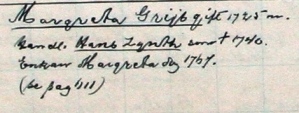 Margreta Grijs gift 1725 m.
handl. Hans Zynth som † 1740.
Enkan Margreta dog 1767.
(se pag 111)